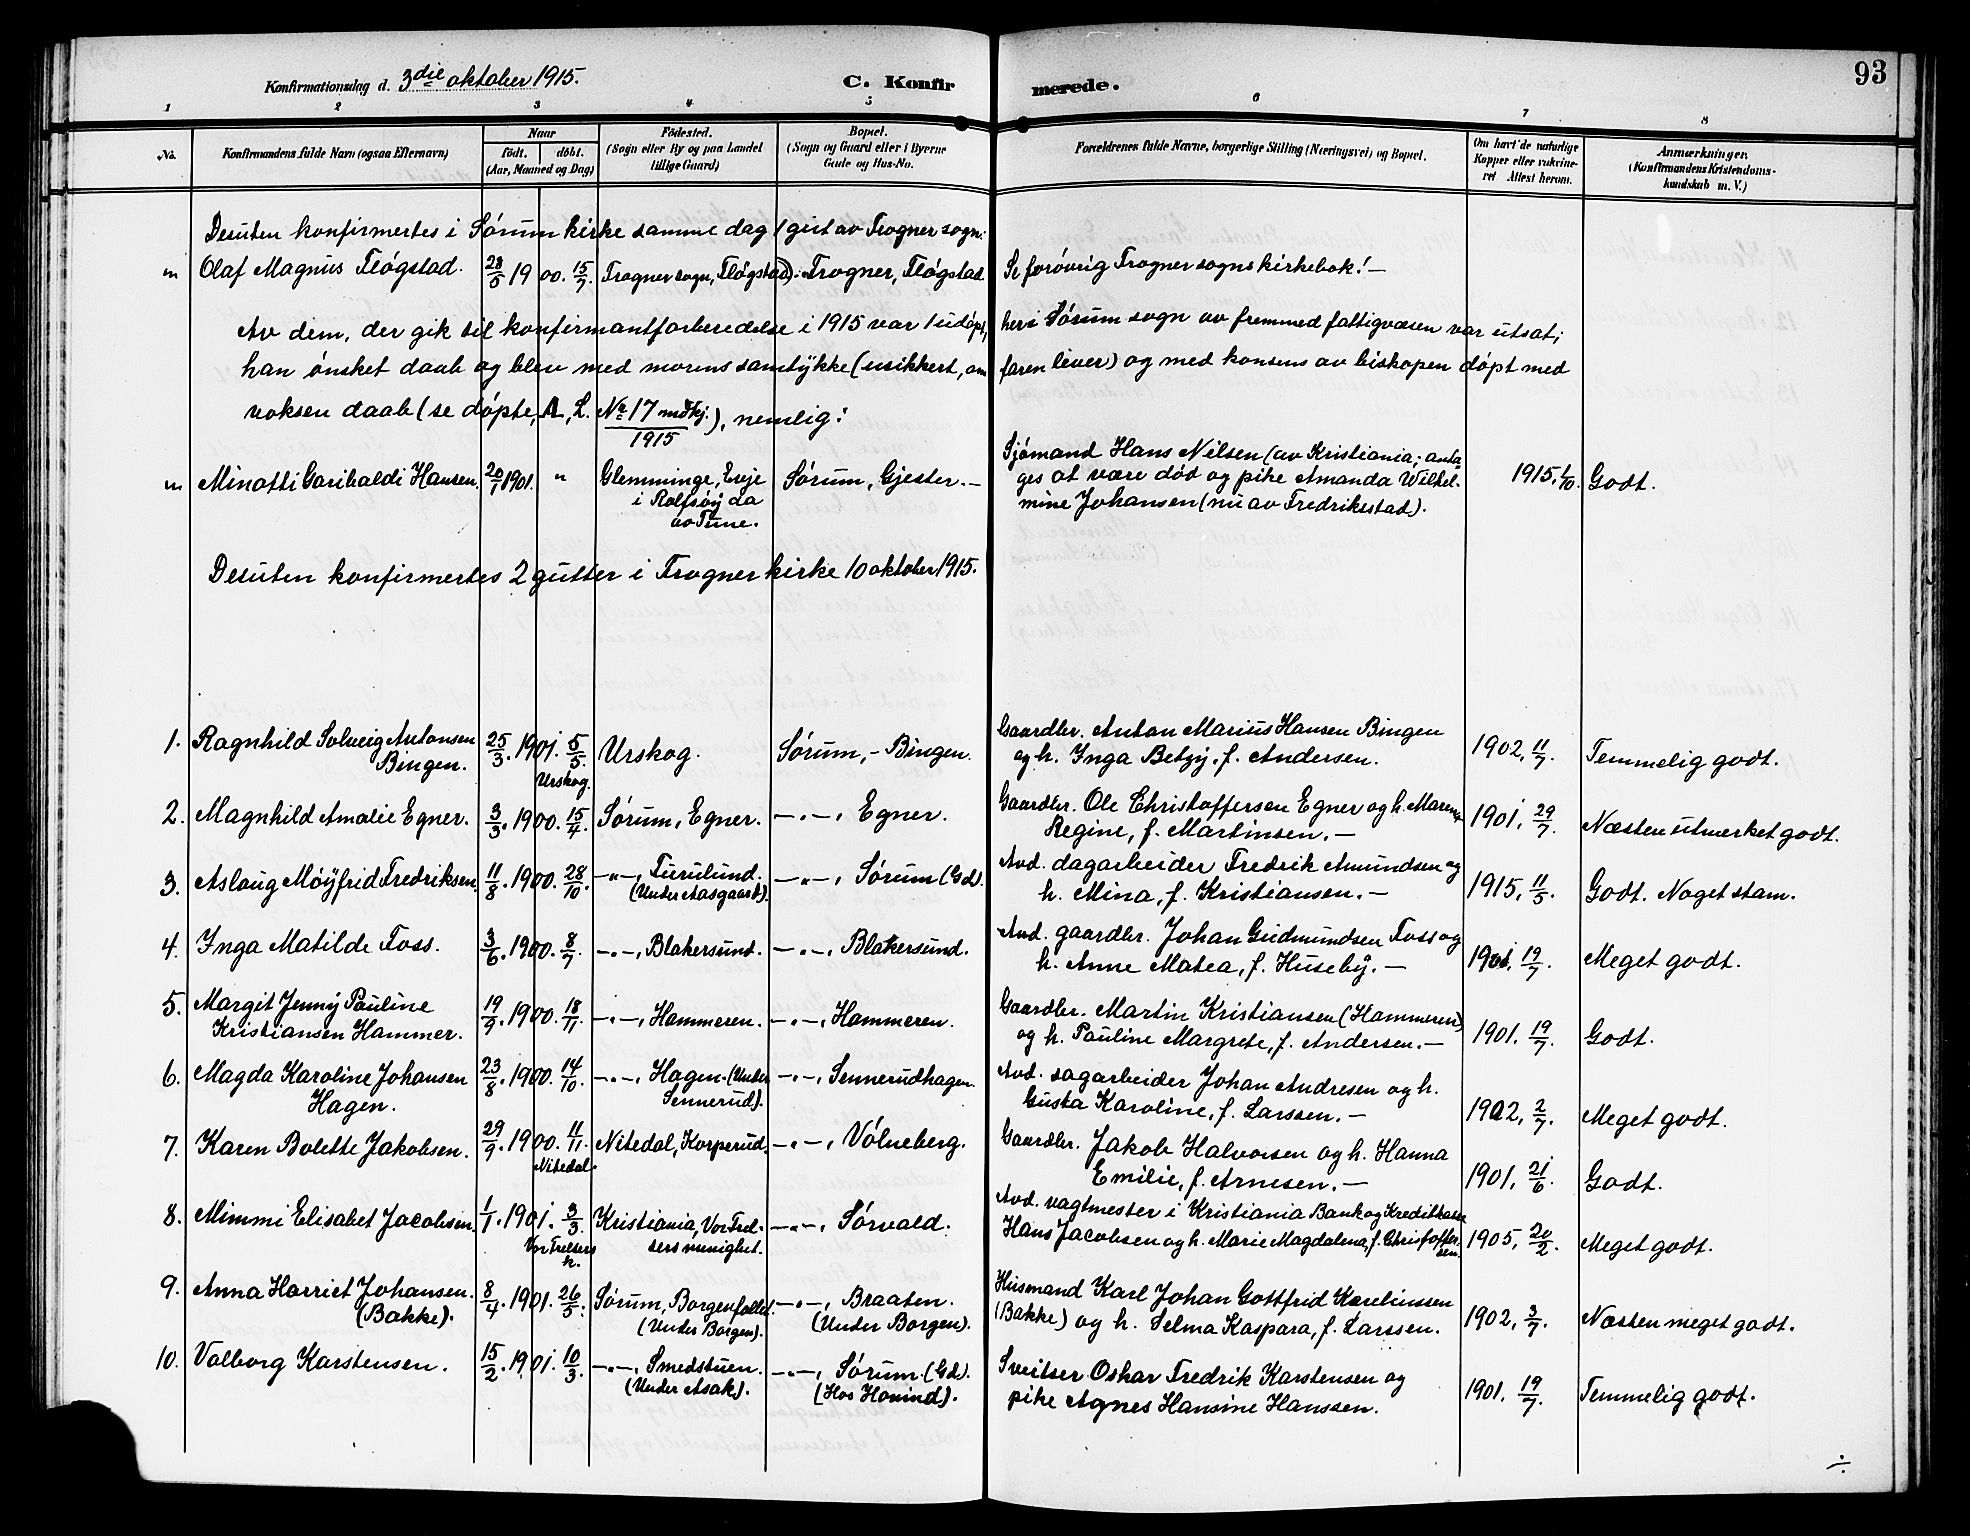 93
Konfirmationsdag d. 3die oktober 1915. C. Konfirmerede.
1 2 3 4 5 6 7 8
No. Konfirmandens fulde Navn (ogsaa Efternavn) Naar födt. döbt. (Aar, Maaned og Dag) Födested. (Sogn eller By og paa Landet tillige Gaard) Bopæl. (Sogn og Gaard eller i Byerne Gade og Hus-No. Forældrenes fulde Navne, borgerlige Stilling (Næringsvei) og Bopæl. Om havt de naturlige Kopper eller vakcineret Attest herom. Anmærkninger. (Konfirmandens Kristendomskundskab m. V.)
Desuten konfirmertes i Sørum kirke samme dag 1 gut av Frogner sogn:
" Olaf Magnus Fløgstad. 28/5 1900. 15/7. Frogner sogn, Fløgstad. Frogner, Fløgstad. Se forøvrig Frogner sogns kirkebok! -
Av dem, der gik til konfirmantforberedelse i 1915 var 1 udøpt, her i Sørum sogn av fremmed fattigvæsen var utsat;
han ønsket daab og blev med morens samtykke (usikkert, om faren lever) og med konsens av biskopen døpt med
voksen daab (se døpte, A, L. No 17 mdkj./1915), nemlig:
" Minotti Garibaldi Hansen. 20/1 1901. " Glemminge, Evje Sørum, Gjester. - Sjømand Hans Nilsen (av Kristiania; anta- 1915. 1/10. Godt.
i Rolfsøy da ges at være død og pike Amanda Wilhel-
av Tune. mine Johansen (nu av Fredrikstad).
Desuten konfirmertes 2 gutter i Frogner kirke 10 oktober 1915.
1. Ragnhild Solveig Antonsen 25/3. 1901. 5/5. Urskog. Sørum, - Bingen. Gaardbr. Anton Marius Hansen Bingen 1902, 11/7. Temmelig godt.
Bingen. Urskog. og h. Inga Betzy, f. Andersen.
2. Magnhild Amalie Egner. 3/3. 1900. 15/4. Sørum, Egner. -"-, Egner. Gaardbr. Ole Christoffersen Egner og h. Maren 1901, 29/7. Næsten utmerket godt.
Regine, f. Martinsen. -
3. Aslaug Møyfrid Fredriksen. 11/8. 1900. 28/10. -"-, Furulund. -"-, Sørum (Gd). Avd. dagarbeider Fredrik Amundsen og 1915, 11/5. Godt. Noget stam.
(Under Aasgaard). h. Mina, f. Kristiansen. -
4. Inga Matilde Foss. 3/6. 1900. 8/7. -"-, Blakersund. -"-, Blakersund. Avd. gaardbr. Johan Gudmundsen Foss og 1901, 19/7. Meget godt.
h. Anne Matea, f. Huseby. -
5. Margit Jenny Pauline 19/9. 1900. 18/11. -"-, Hammeren. -"-, Hammeren. Gaardbr. Martin Kristiansen (Hammeren) 1901. 19/7. Godt.
Kristiansen Hammer. og h. Pauline Margrete, f. Andersen. -
6. Magda Karoline Johansen 23/8. 1900. 14/10. -"-, Hagen. (Under -"-, Sennerudhagen. Avd. sagarbeider Johan Andresen og h. 1902, 2/7. Meget godt.
Hagen. Sennerud). Gusta Karoline, f. Larssen. -
7. Karen Bolette Jakobsen. 29/9. 1900. 11/11. Nitedal, Korperud. -"-, Vølneberg. Gaardbr. Jakob Halvorsen og h. Hanna 1901, 21/6. Godt.
Nitedal. Emilie, f. Arnesen. -
8. Mimmi Elisabet Jacobsen. 1/1. 1901. 3/3. Kristiania, Vor Frel- -"-, Sørvald. Avd. vagtmester i Kristiania Bank og Kreditkasse 1905, 20/2. Meget godt.
Vor Frelsers k. sers menighet. Hans Jacobsen og h. Marie Magdalena, f. Christoffersen.
9. Anna Harriet Johansen. 8/4. 1901. 26/5. Sørum, Borgenfallet. -"-, Braaten. Husmand Karl Johan Gottfrid Karelinssen 1902, 3/7. Næsten meget godt.
(Bakke). (Under Borgen). (Under Borgen). (Bakke) og h. Selma Kaspara, f. Larssen.
10. Valborg Karstensen. 15/2. 1901. 10/3. -"-, Smedstuen. -"-, Sørum (Gd). Sveitser Oskar Fredrik Karstensen og 1901. 19/7. Temmelig godt.
(Under Asak). (Hos Hovind). pike Agnes Hansine Hanssen.